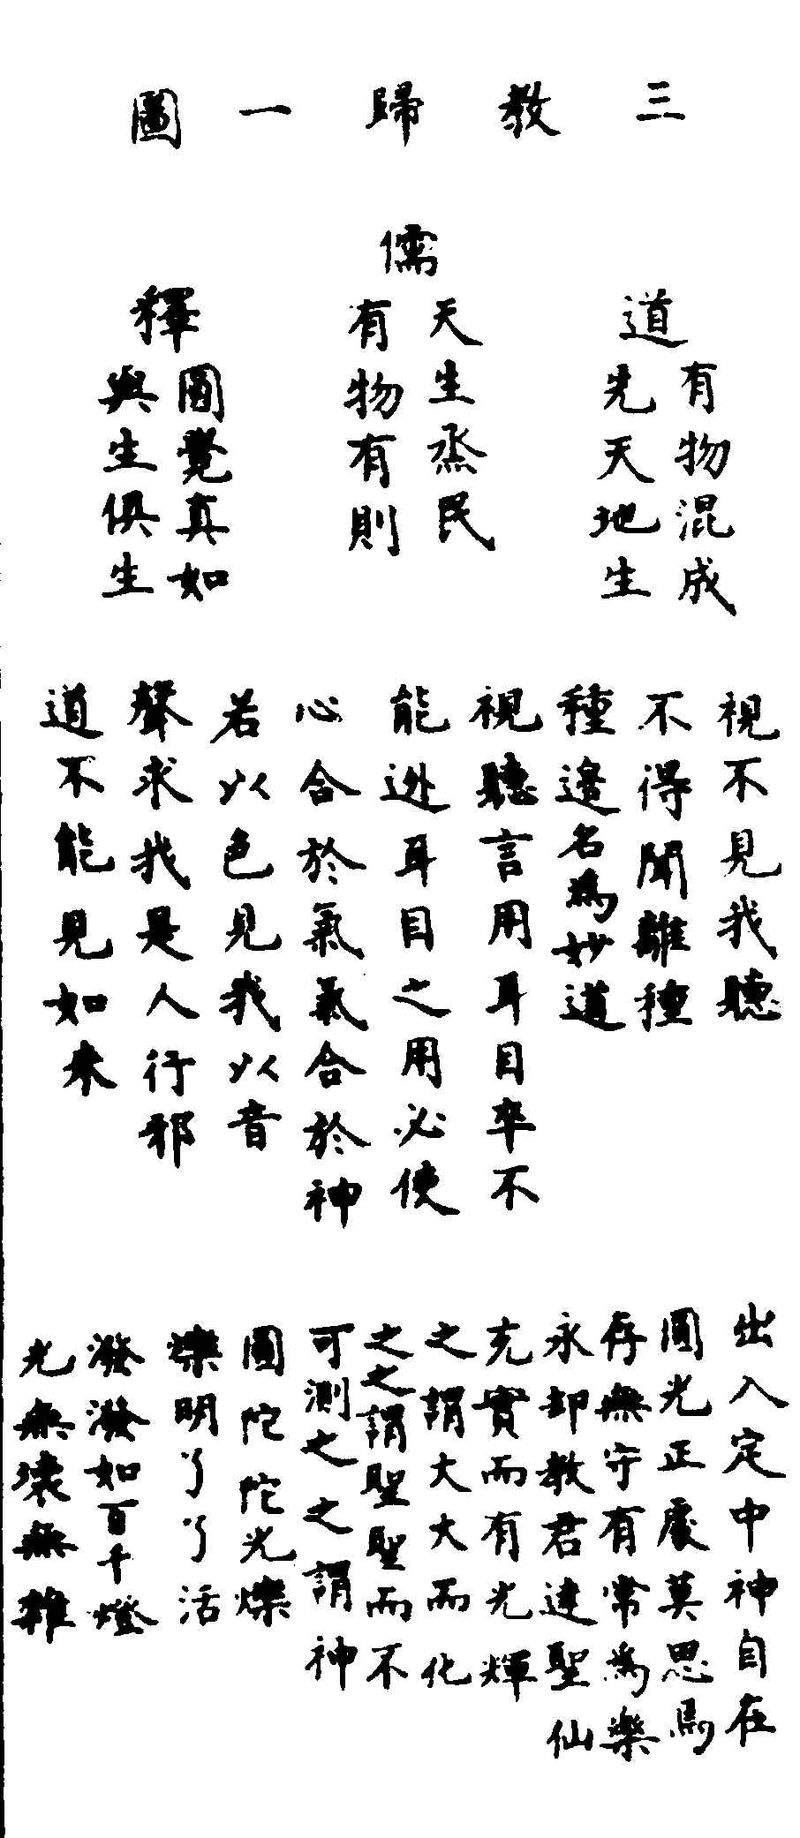 三教歸一圖
道
有物混成
先天地生
儒
天生烝民
有物有則
釋
圓覺真如
與生俱生
視不見我聽
不得聞離種
種邊名為妙道
視聽言用耳目卒不
能逃耳目之用必使
心合於氣氣合於神
若以色見我以音
聲求我是人行邪
道不能見如来
出入定中神自在
圓光正處莫思焉
存無守有常為樂
永却教君達聖仙
充實而有光輝
之謂大大而化
之之謂聖聖而不
可測之之謂神
圓陀陀光爍
爍明了了活
潑潑如百千燈
光無壞無雜